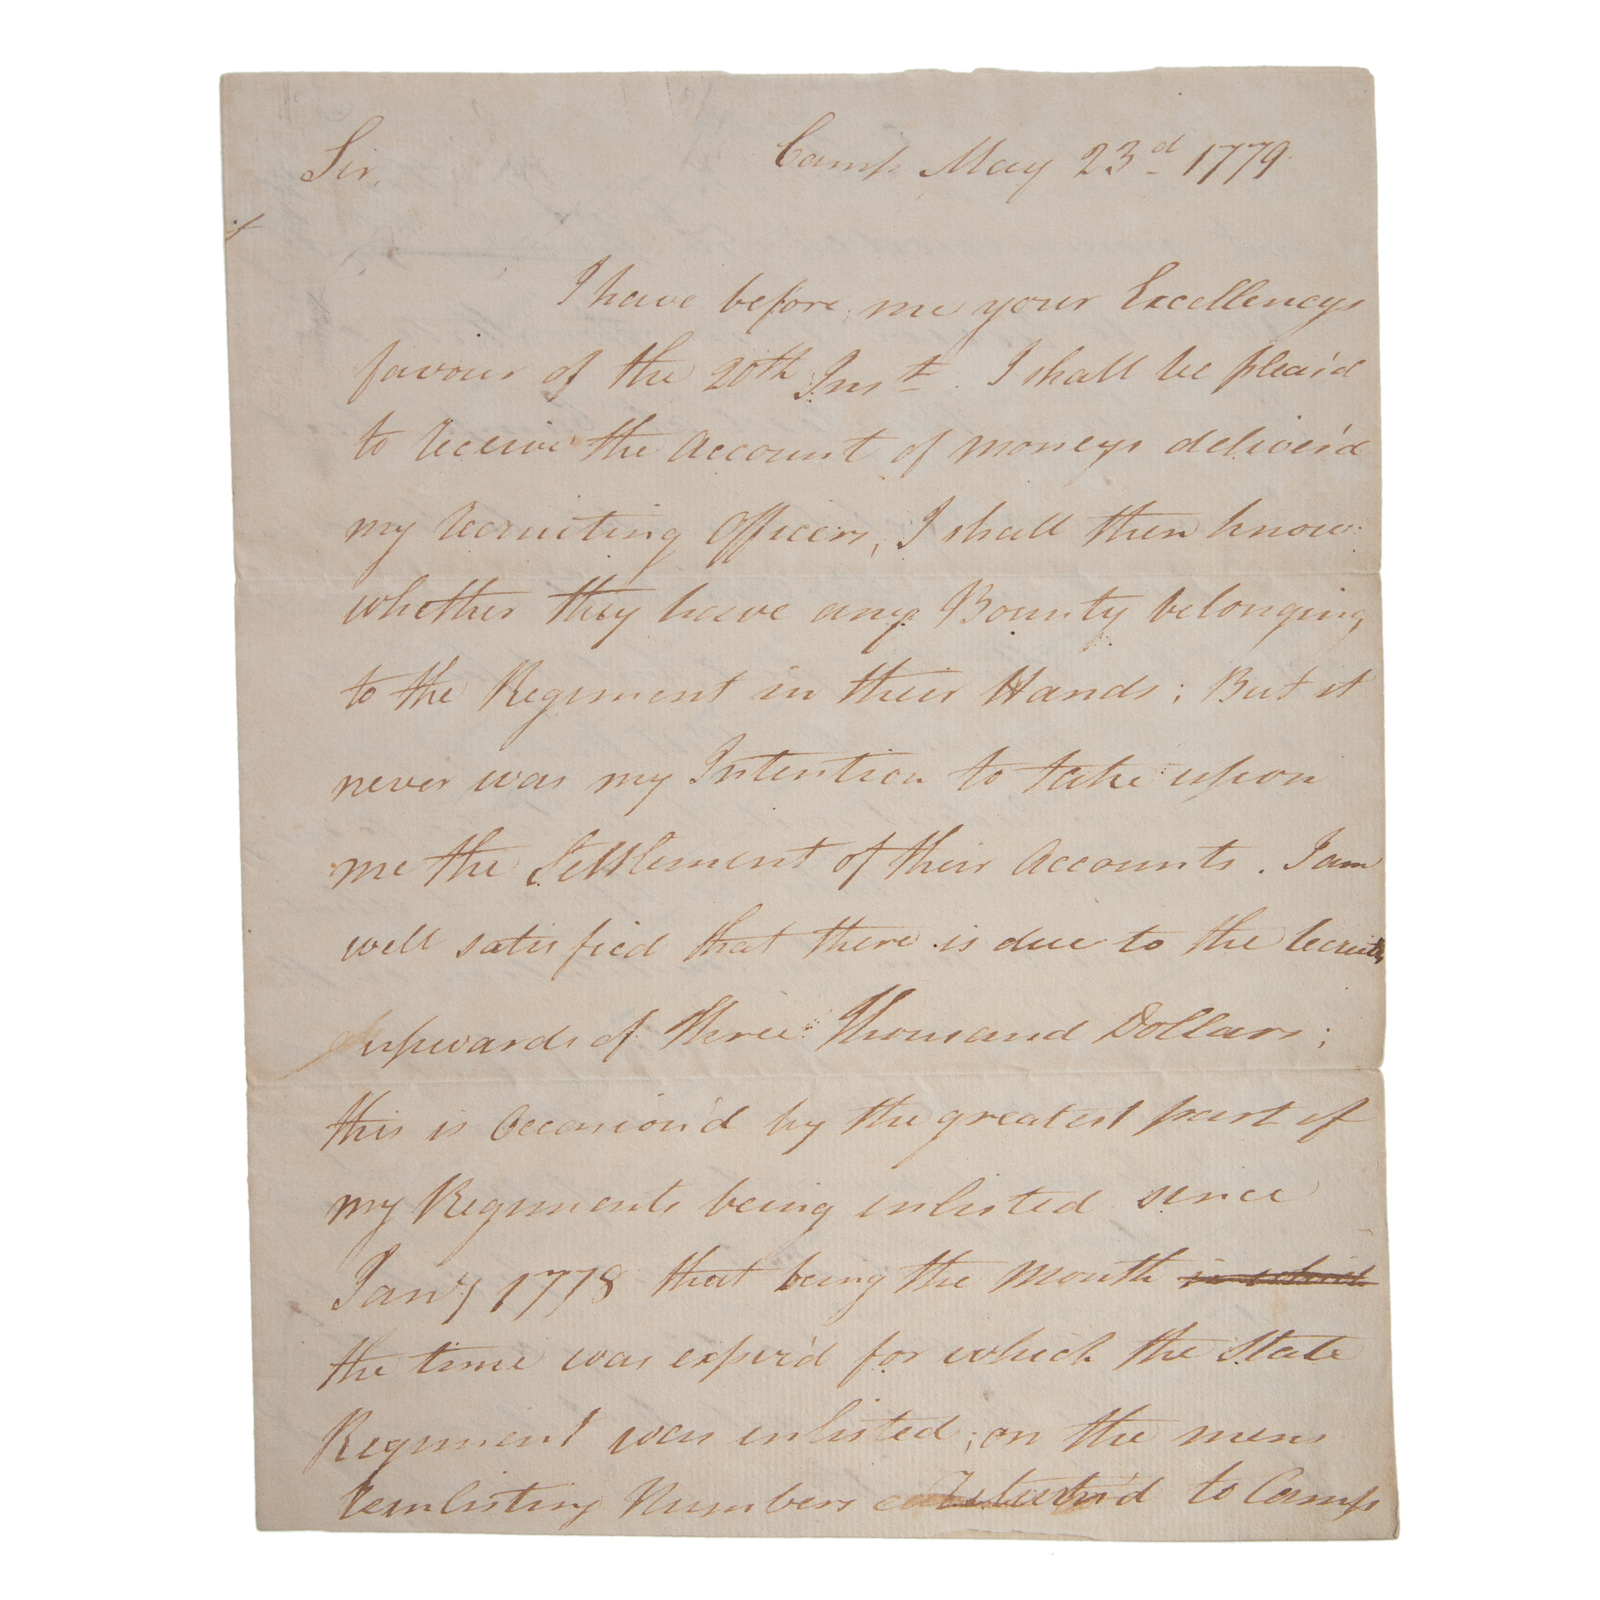 Sir, Camp May 23d 1779
I have before me your Excellencys
favour of the 20th Inst. I shall be pleas'd
to receive the Account of moneys deliver'd
my recruiting Officers, I shall then know
whether they have any Bounty belonging
to the Regiment in their Hands; But it
never was my Intention to take upon
me the Settlement of their Accounts. I am
well satisfied that there is due to the recruits
upwards of three thousand Dollars;
this is Occasion'd by the greatest part of
my Regiments being enlisted since
Jany 1778 that being the Month in which
the time was expir'd for which the State
Regiment was enlisted; on the mens
reenlisting Numbers return'd to Camp